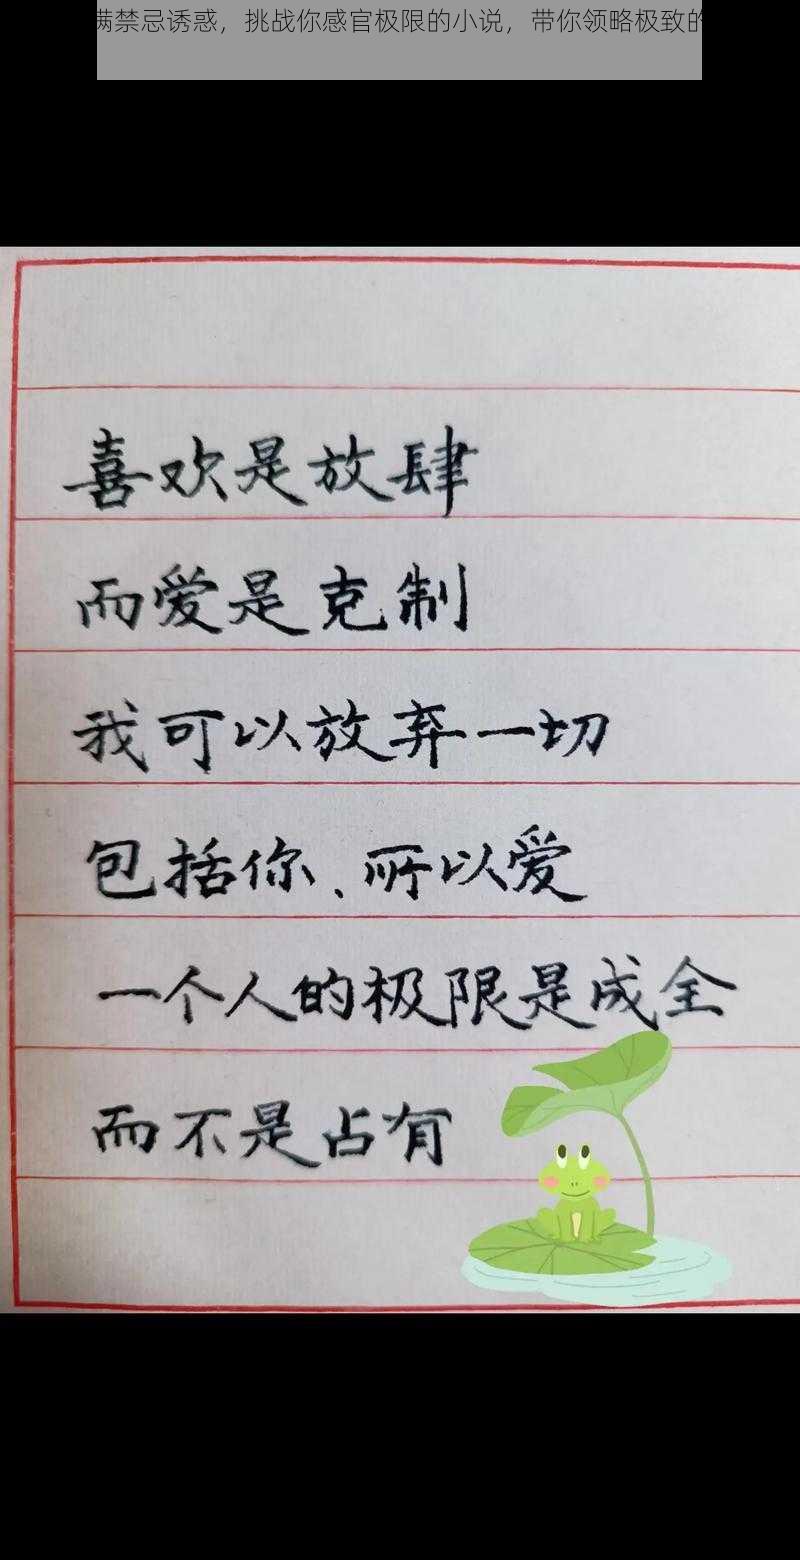 满禁忌诱惑，挑战你感官极限的小说，带你领略极致的
喜欢是放肆
而爱是克制
我可以放弃一切
包括你、所以爱
一个人的极限是成全
而不是占有